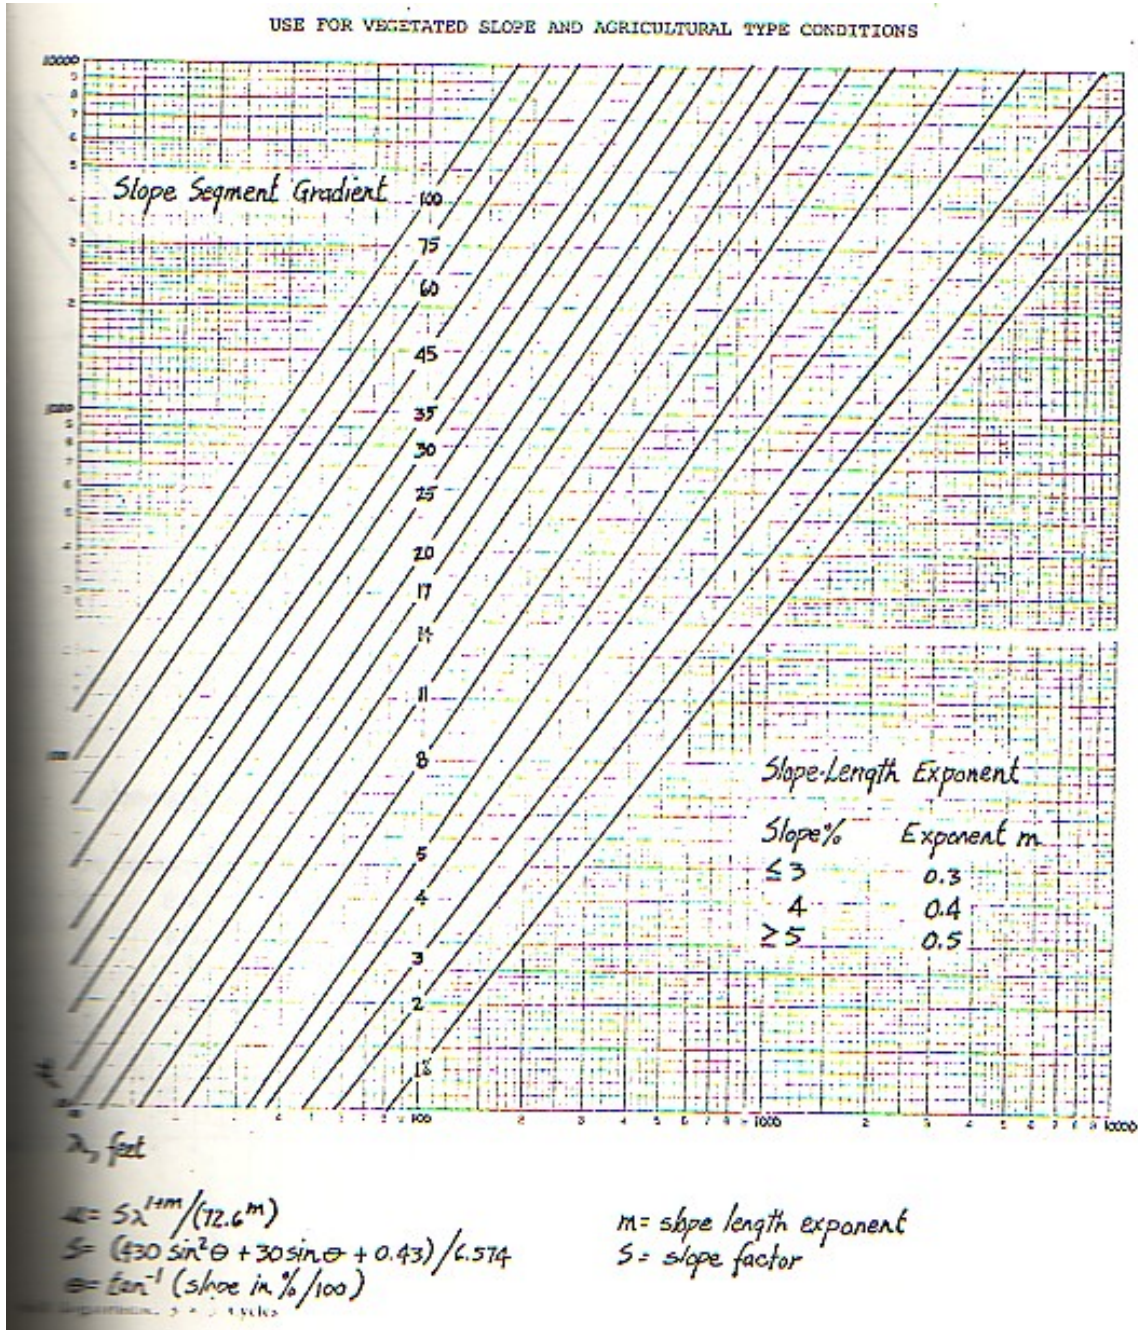 USE FOR VEGETATED SLOPE AND AGRICULTURAL TYPE CONDITIONS
10000
9
8
7
6
5
Slope Segment Gradient
100
3
75
60
2
45
1000
35
9
8
30
7
6
25
5
4
20
3
17
14
11
100
8
Slope-Length Exponent
Slope% Exponent m
≤3 0.3
4 0.4
≥5 0.5
5
4
3
2
1%
100 2 3 4 5 6 7 8 9 1000 2 3 4 5 6 7 8 9 10000
λ, feet
= Sλ^1+m/(72.6^m)
S= (430 sin²θ + 30 sin θ + 0.43)/6.574
θ= tan⁻¹ (slope in %/100)
m= slope length exponent
S= slope factor
cycles